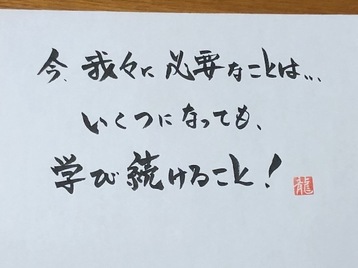 今、我々に必要なことは...
いくつになっても、
学び続けること！
龍